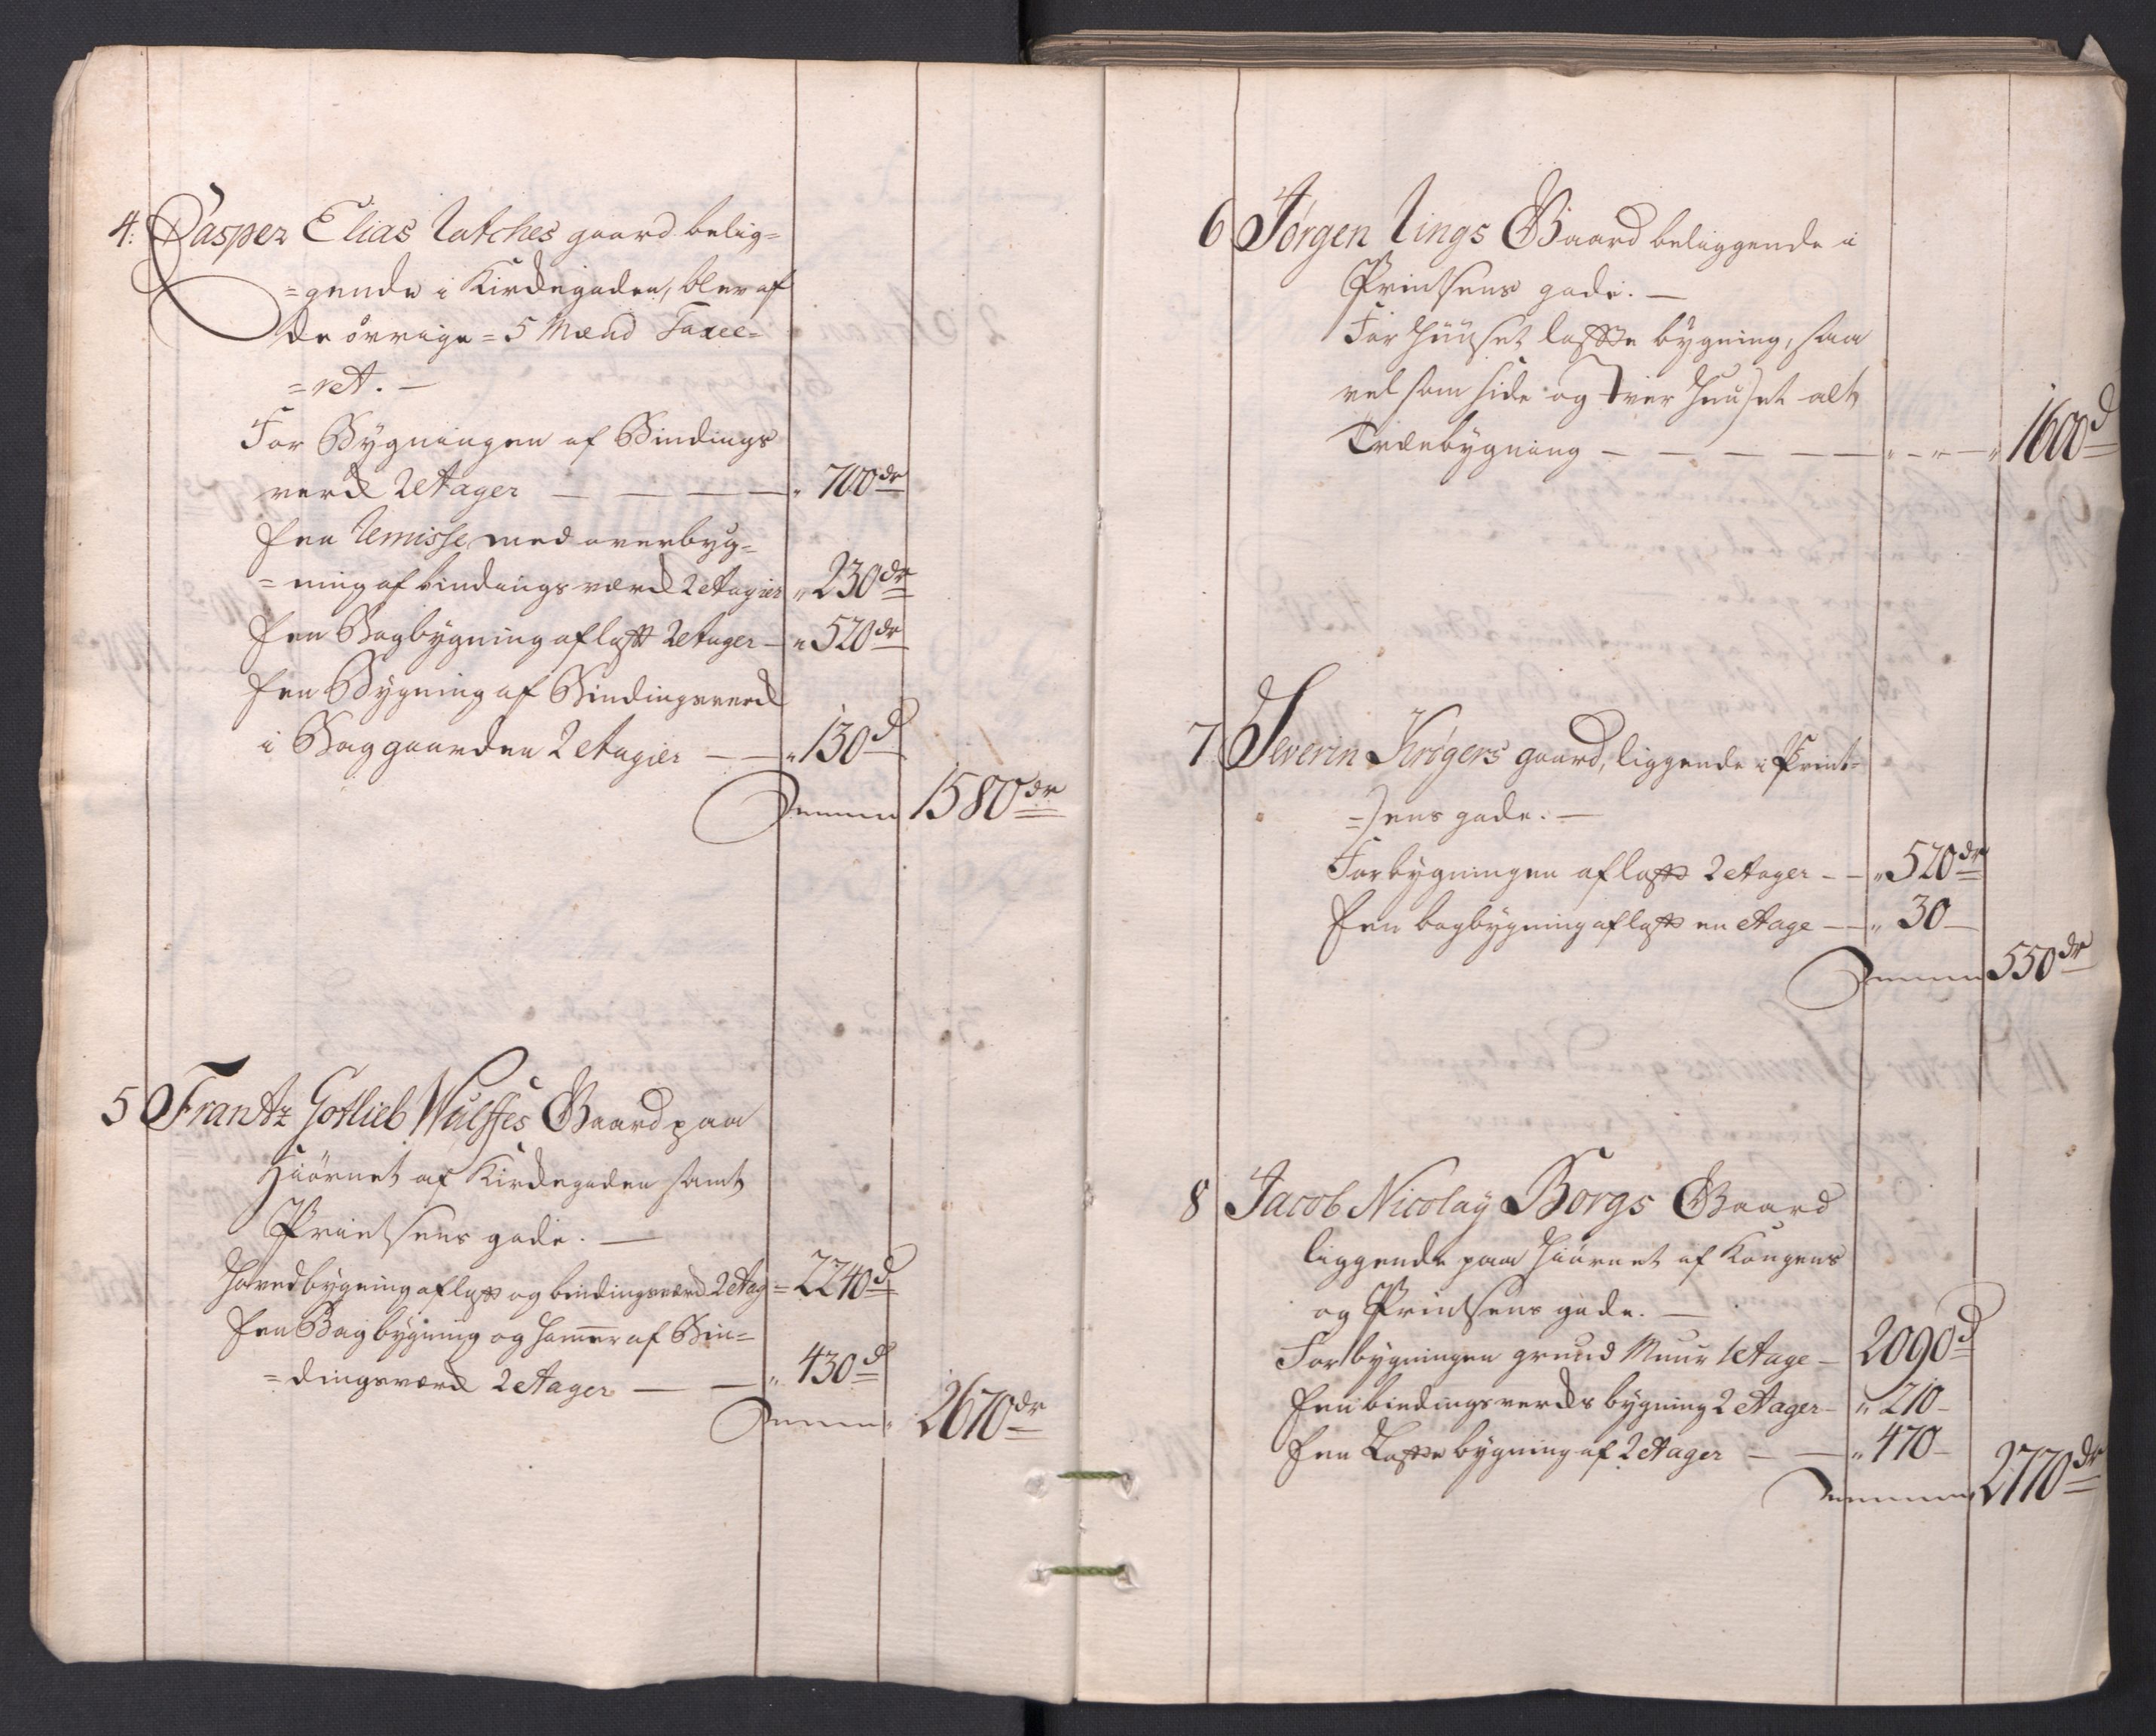 4. Casper Elias Ratches gaard belig=
=gende i Kirckegaden, blev af
de øvrige = 5 Mænd Taxee=
=ret. —
For Bygningen af Bindings
verck 2 Etager — — — — „ 700 dr
Een Remisse, med overbyg=
=ning af bindings værck 2 Etagier „ 230 dr
Een Bagbygning af laft 2 Etager — „ 520 dr
Een Bygning af Bindingsverck
i Baggaarden 2 Etagier — — „ 130 d
Summa 1580 dr
5 Frantz Gotlieb Wulffes Gaard paa
Hiørnet af Kirckegaden samt
Printsens gade. —
Hovedbygning af laft og bindingsværck 2 Etag = 2240 d
Een Bagbygning og Hammer af Bin=
=dingsværck 2 Etager — — „ 430 d
Summa „ 2670 dr
6 Jørgen Rings Gaard beliggende i
Printsens gade. —
For Huuset lafte bygning, saa
vel som side og Tver Huuset alt
Træebygning — — — — — „ — „ — „ 1600 d
7 Severin Krøgers gaard, liggende i Print=
=sens gade. —
Forbygningen af laft 2 Etager — — „ 520 dr
Een bagbygning af laft en Etage — — „ 30 —
Summa 550 dr
8 Jacob Nicolay Borgs Gaard
liggende paa Hiørnet af Kongens
og Printsens gade. —
Forbygningen grund Muur 1 Etage — 2090 d
Een bindingsvercks bygning 2 Etager — „ 210 —
Een Lafte bygning af 2 Etager — — „ 470 —
Summa 2770 dr